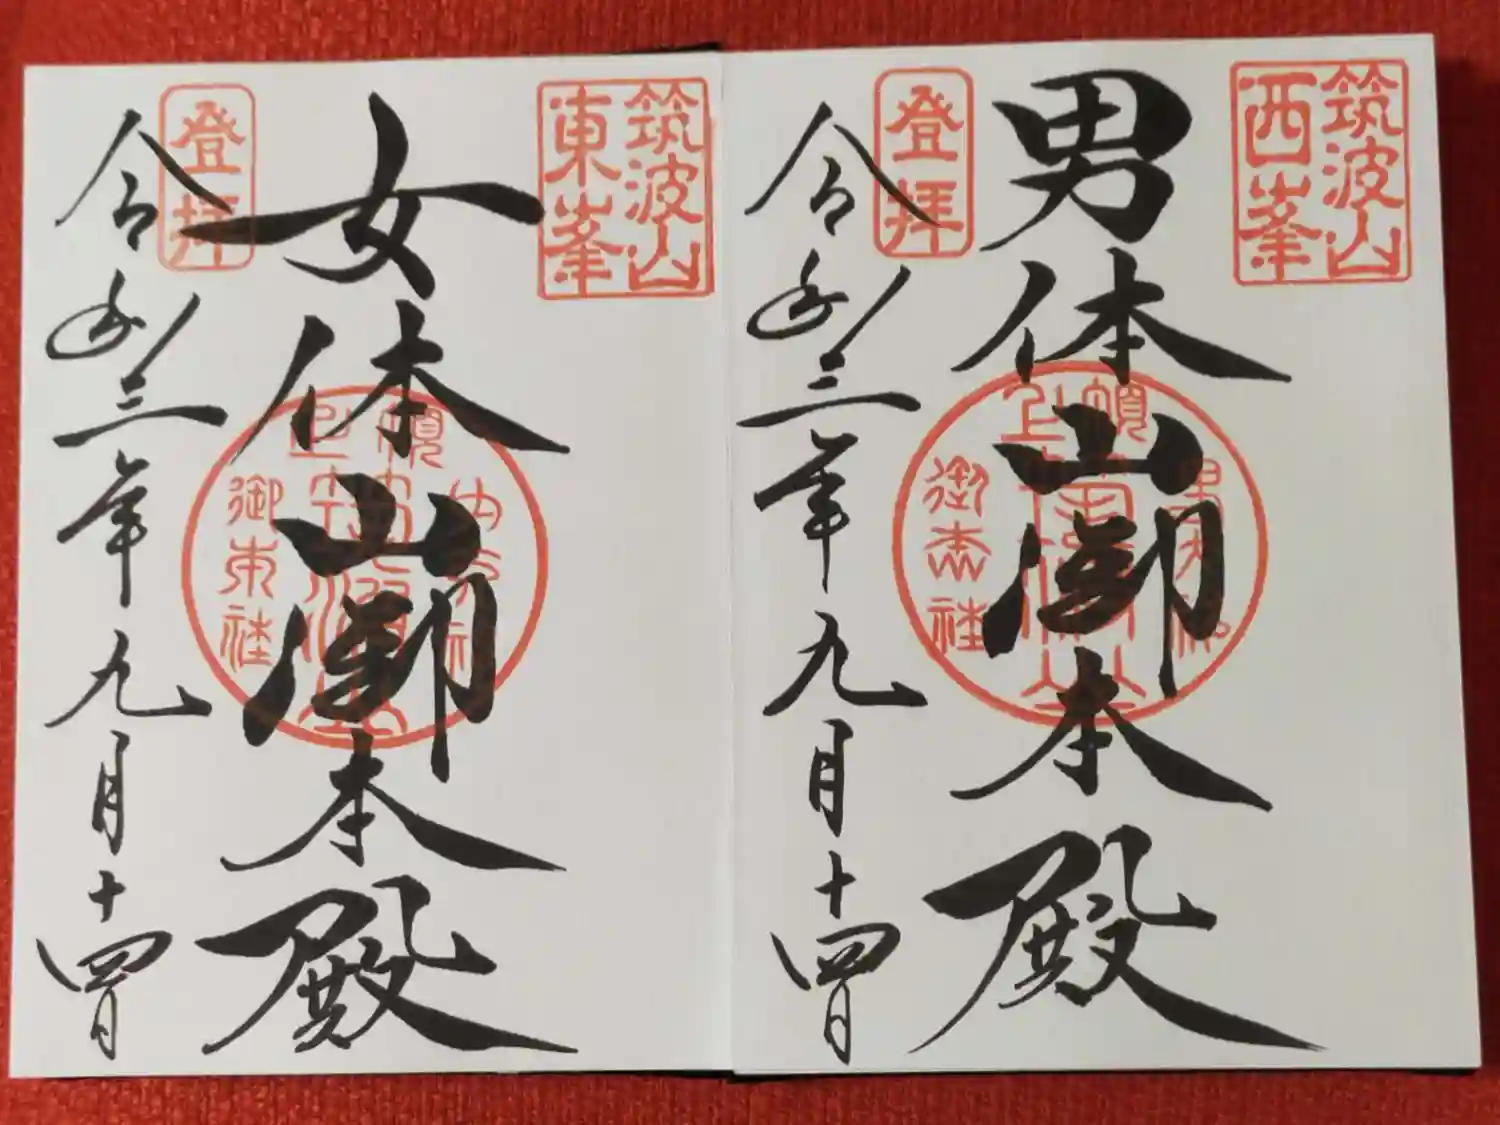 筑波山
西峯
男体山御本殿
登拝
令和三年九月十四日
筑波山
東峯
女体山御本殿
登拝
令和三年九月十四日